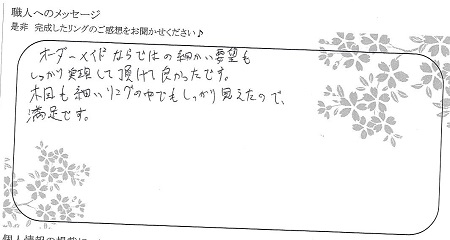 職人へのメッセージ
是非 完成したリングのご感想をお聞かせください♪
オーダーメイドならではの細かい要望も
しっかり実現して頂けて良かったです。
木目も細いリングの中でもしっかり見えたので、
満足です。